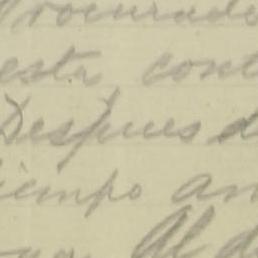 Procurado
esta, cont
Despues d
iempo an
Al d